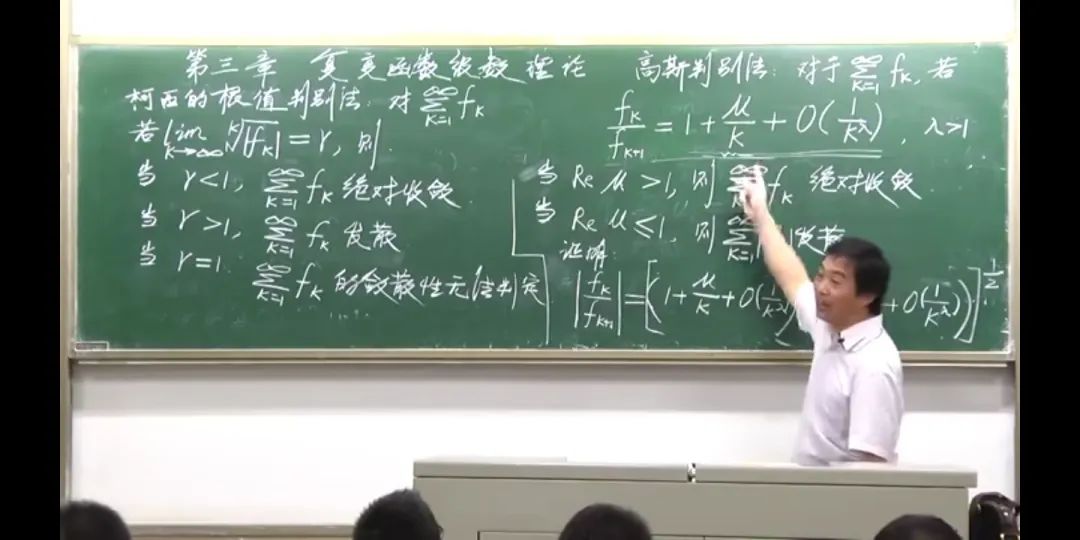 第三章 复变函数级数理论
柯西的根值判别法：对 ∑_{k=1}^{∞} f_k
若 lim_{k→∞} ᵏ√|f_k| = r, 则
当 r<1, ∑_{k=1}^{∞} f_k 绝对收敛
当 r>1, ∑_{k=1}^{∞} f_k 发散
当 r=1. ∑_{k=1}^{∞} f_k 的敛散性无法判定
高斯判别法：对于 ∑_{k=1}^{∞} f_k, 若
f_k/f_{k+1} = 1 + μ/k + O(1/k^λ), λ>1
当 Re μ >1, 则 ∑ f_k 绝对收敛.
当 Re μ ≤1, 则 ∑_{k=1} 发散
证明:
|f_k/f_{k+1}| = [(1 + μ/k + O(1/k^λ) + O(1/k^λ))]^{1/2}